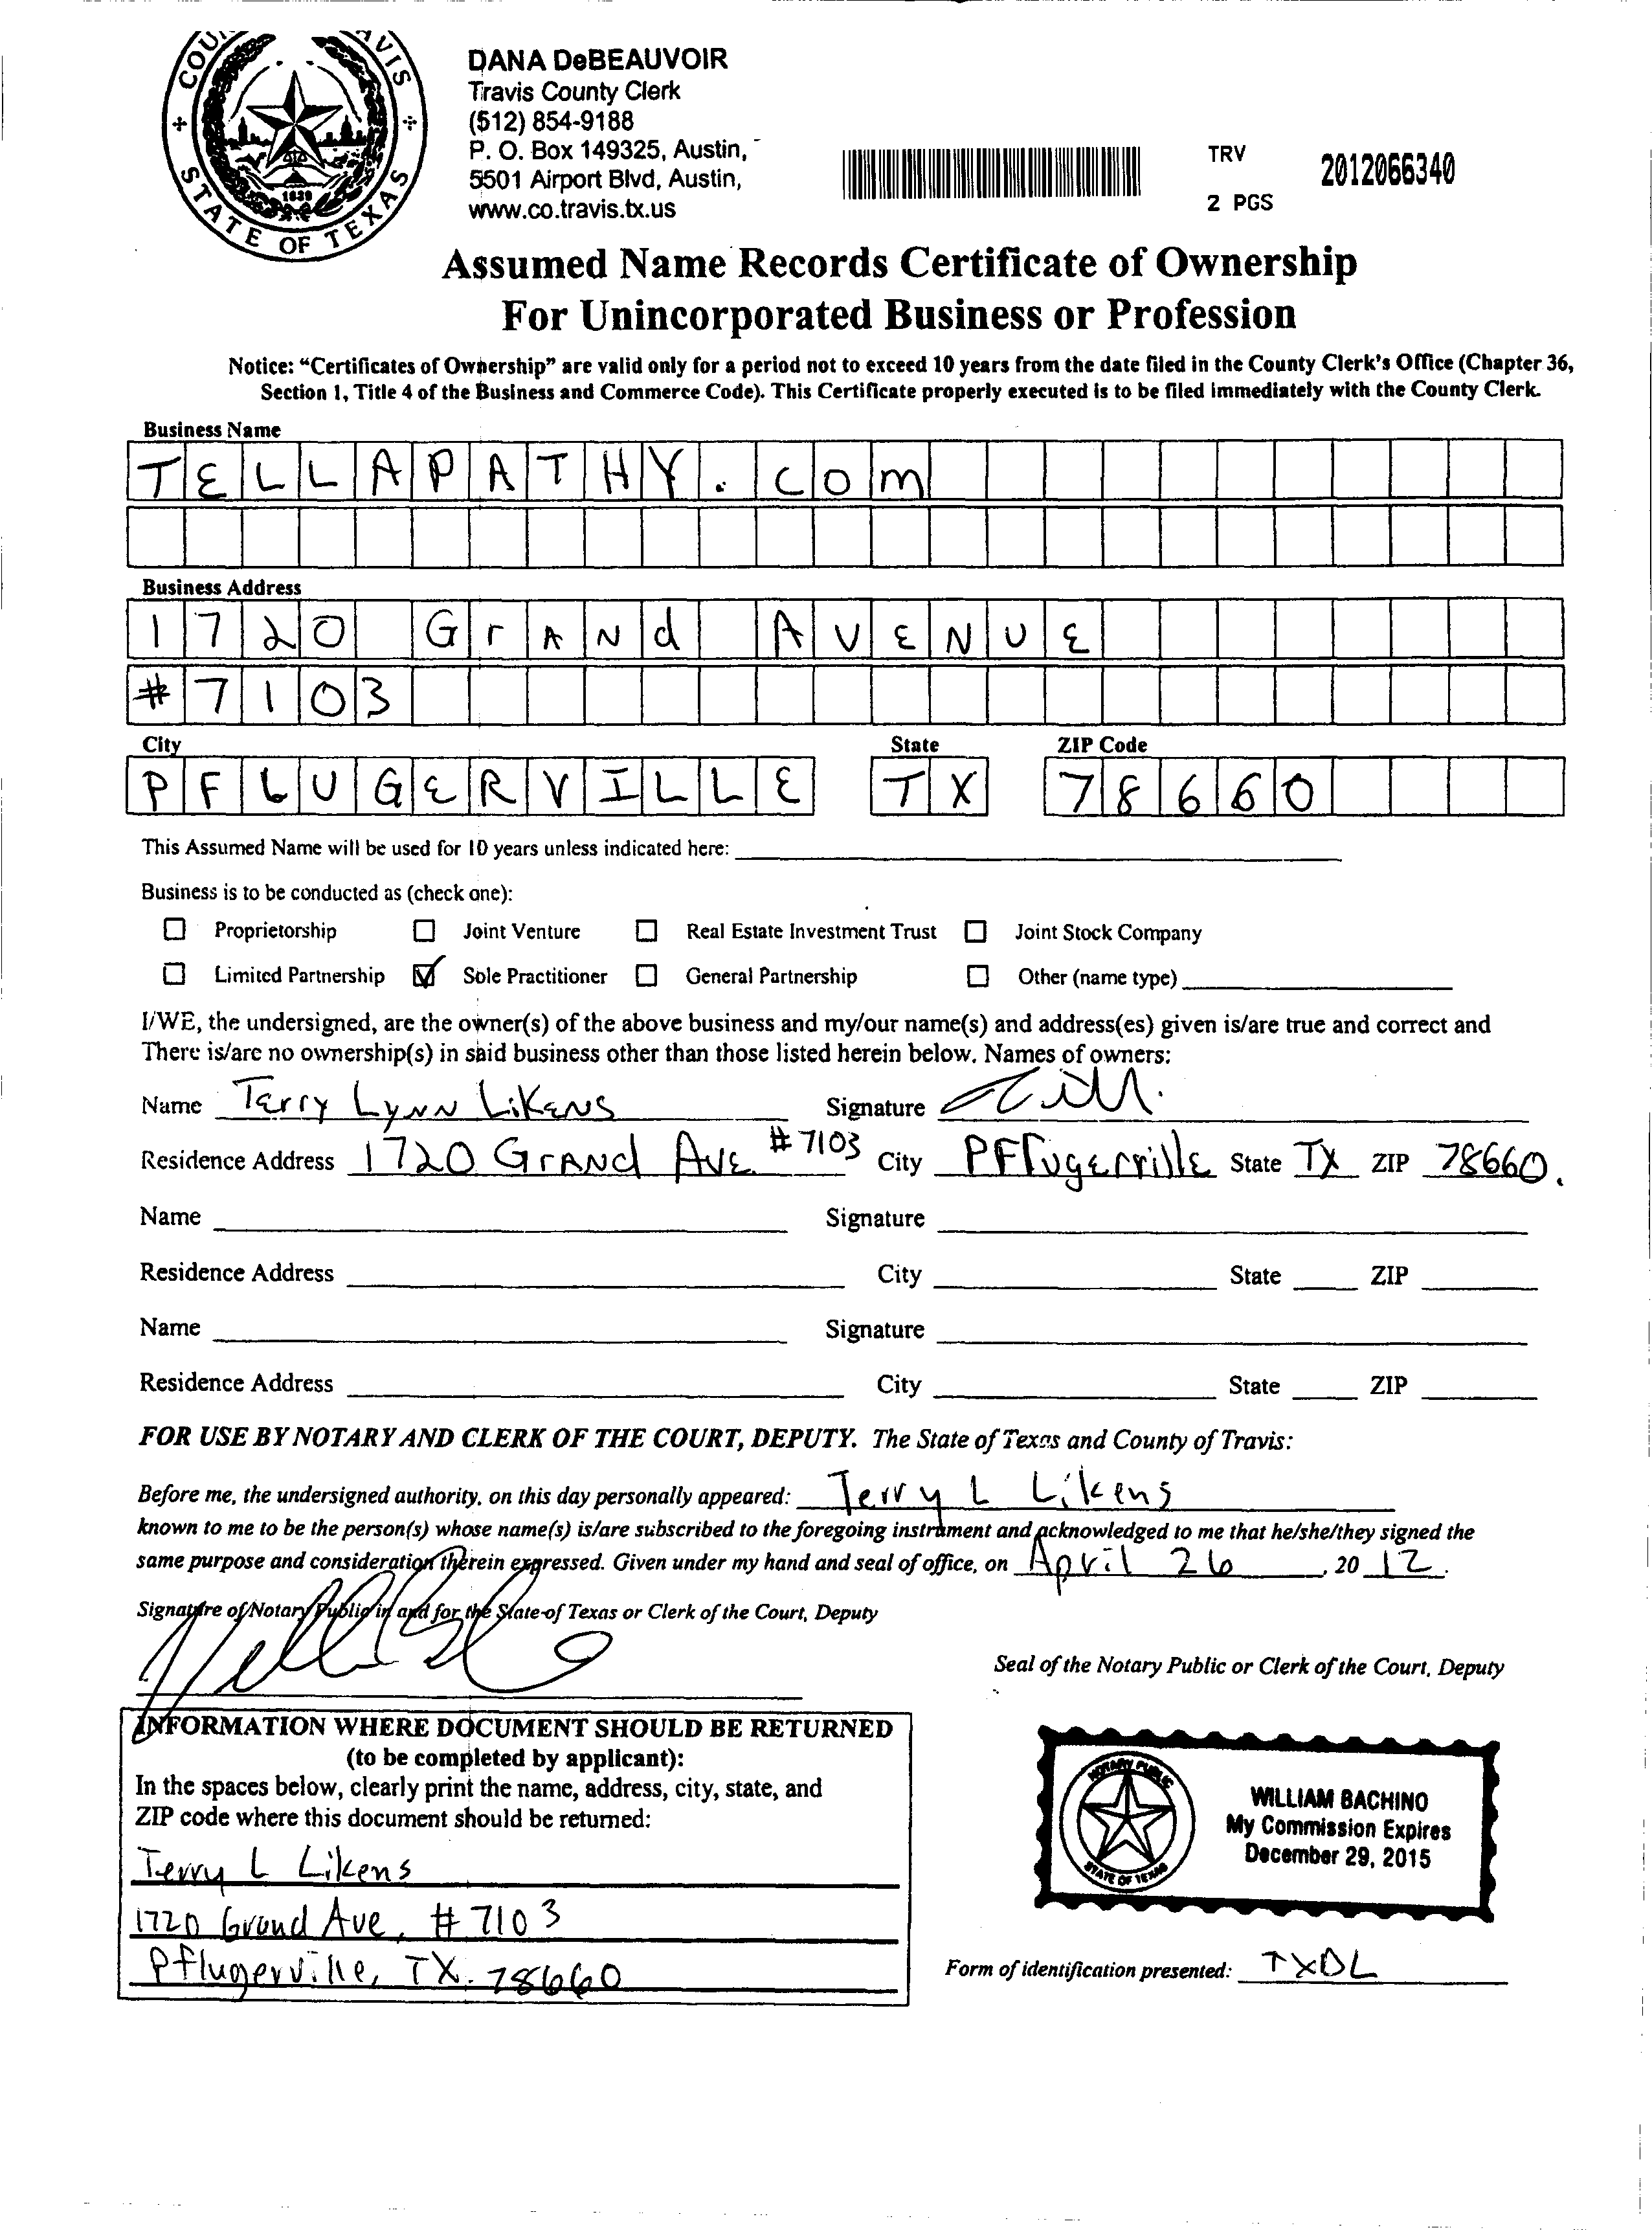 COU VIS
STATE OF TEXAS
1839
DANA DeBEAUVOIR
Travis County Clerk
(512) 854-9188
P. O. Box 149325, Austin,
5501 Airport Blvd, Austin,
www.co.travis.tx.us
TRV 2012066340
2 PGS
Assumed Name Records Certificate of Ownership
For Unincorporated Business or Profession
Notice: “Certificates of Ownership” are valid only for a period not to exceed 10 years from the date filed in the County Clerk's Office (Chapter 36,
Section 1, Title 4 of the Business and Commerce Code). This Certificate properly executed is to be filed immediately with the County Clerk.
Business Name
TELLAPATHY.com
Business Address
1720 GrANd AVENUE
#7103
City State ZIP Code
PFLUGERVILLE TX 78660
This Assumed Name will be used for 10 years unless indicated here:
Business is to be conducted as (check one):
☐ Proprietorship ☐ Joint Venture ☐ Real Estate Investment Trust ☐ Joint Stock Company
☐ Limited Partnership ☑ Sole Practitioner ☐ General Partnership ☐ Other (name type)
I/WE, the undersigned, are the owner(s) of the above business and my/our name(s) and address(es) given is/are true and correct and
There is/are no ownership(s) in said business other than those listed herein below. Names of owners:
Name Terry Lynn Likens Signature
Residence Address 1720 Grand Ave #7103 City Pflugerville State TX ZIP 78660.
Name Signature
Residence Address City State ZIP
Name Signature
Residence Address City State ZIP
FOR USE BY NOTARY AND CLERK OF THE COURT, DEPUTY. The State of Texas and County of Travis:
Before me, the undersigned authority, on this day personally appeared: Terry L Likens
known to me to be the person(s) whose name(s) is/are subscribed to the foregoing instrument and acknowledged to me that he/she/they signed the
same purpose and consideration therein expressed. Given under my hand and seal of office, on April 26, 2012.
Signature of Notary Public in and for the State of Texas or Clerk of the Court, Deputy
Seal of the Notary Public or Clerk of the Court, Deputy
INFORMATION WHERE DOCUMENT SHOULD BE RETURNED
(to be completed by applicant):
In the spaces below, clearly print the name, address, city, state, and
ZIP code where this document should be returned:
Terry L Likens
1720 Grand Ave, #7103
Pflugerville, TX. 78660
NOTARY PUBLIC
STATE OF TEXAS
WILLIAM BACHINO
My Commission Expires
December 29, 2015
Form of identification presented: TXDL